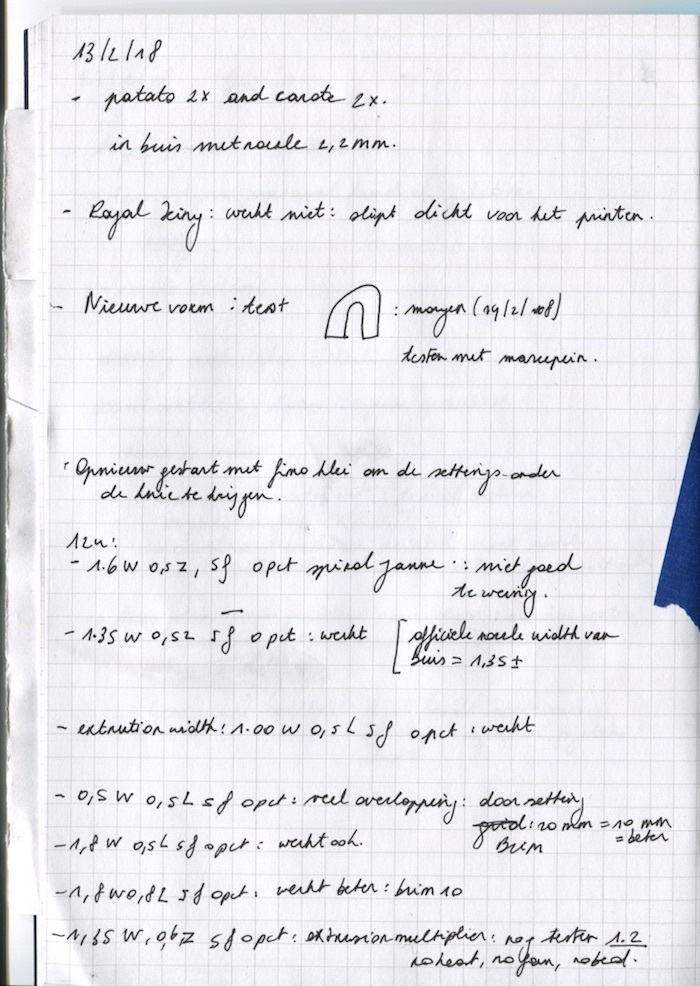 13/2/18
- patato 2x and carote 2x.
in buis met nozzle 2,2mm.
- Royal Icing: werkt niet: slipt dicht voor het printen.
- Nieuwe vorm: test : morgen (14/2/18)
testen met marsepein.
Opnieuw gestart met fimo klei om de settings onder
de knie te krijgen.
12u:
- 1.6W 0,5Z, Sf 0 pct spiral : niet goed
te weinig.
- 1.35W 0,5Z Sf 0 pct : werkt [officiele nozzle width van
Buis = 1,35±
- extrution width: 1.00 W 0,5L Sf 0 pct : werkt
- 0,5W 0,5L Sf 0 pct: veel overlopping: door setting
grid: 20 mm = 10 mm
BRIM = beter
- 1,8W 0,5L Sf 0 pct: werkt ook.
- 1,8W 0,8L Sf 0 pct: werkt beter: brim 10
- 1,35W, 0,6Z Sf 0 pct: extrusion multiplier: nog testen 1.2
no heat, no fan, no bed.